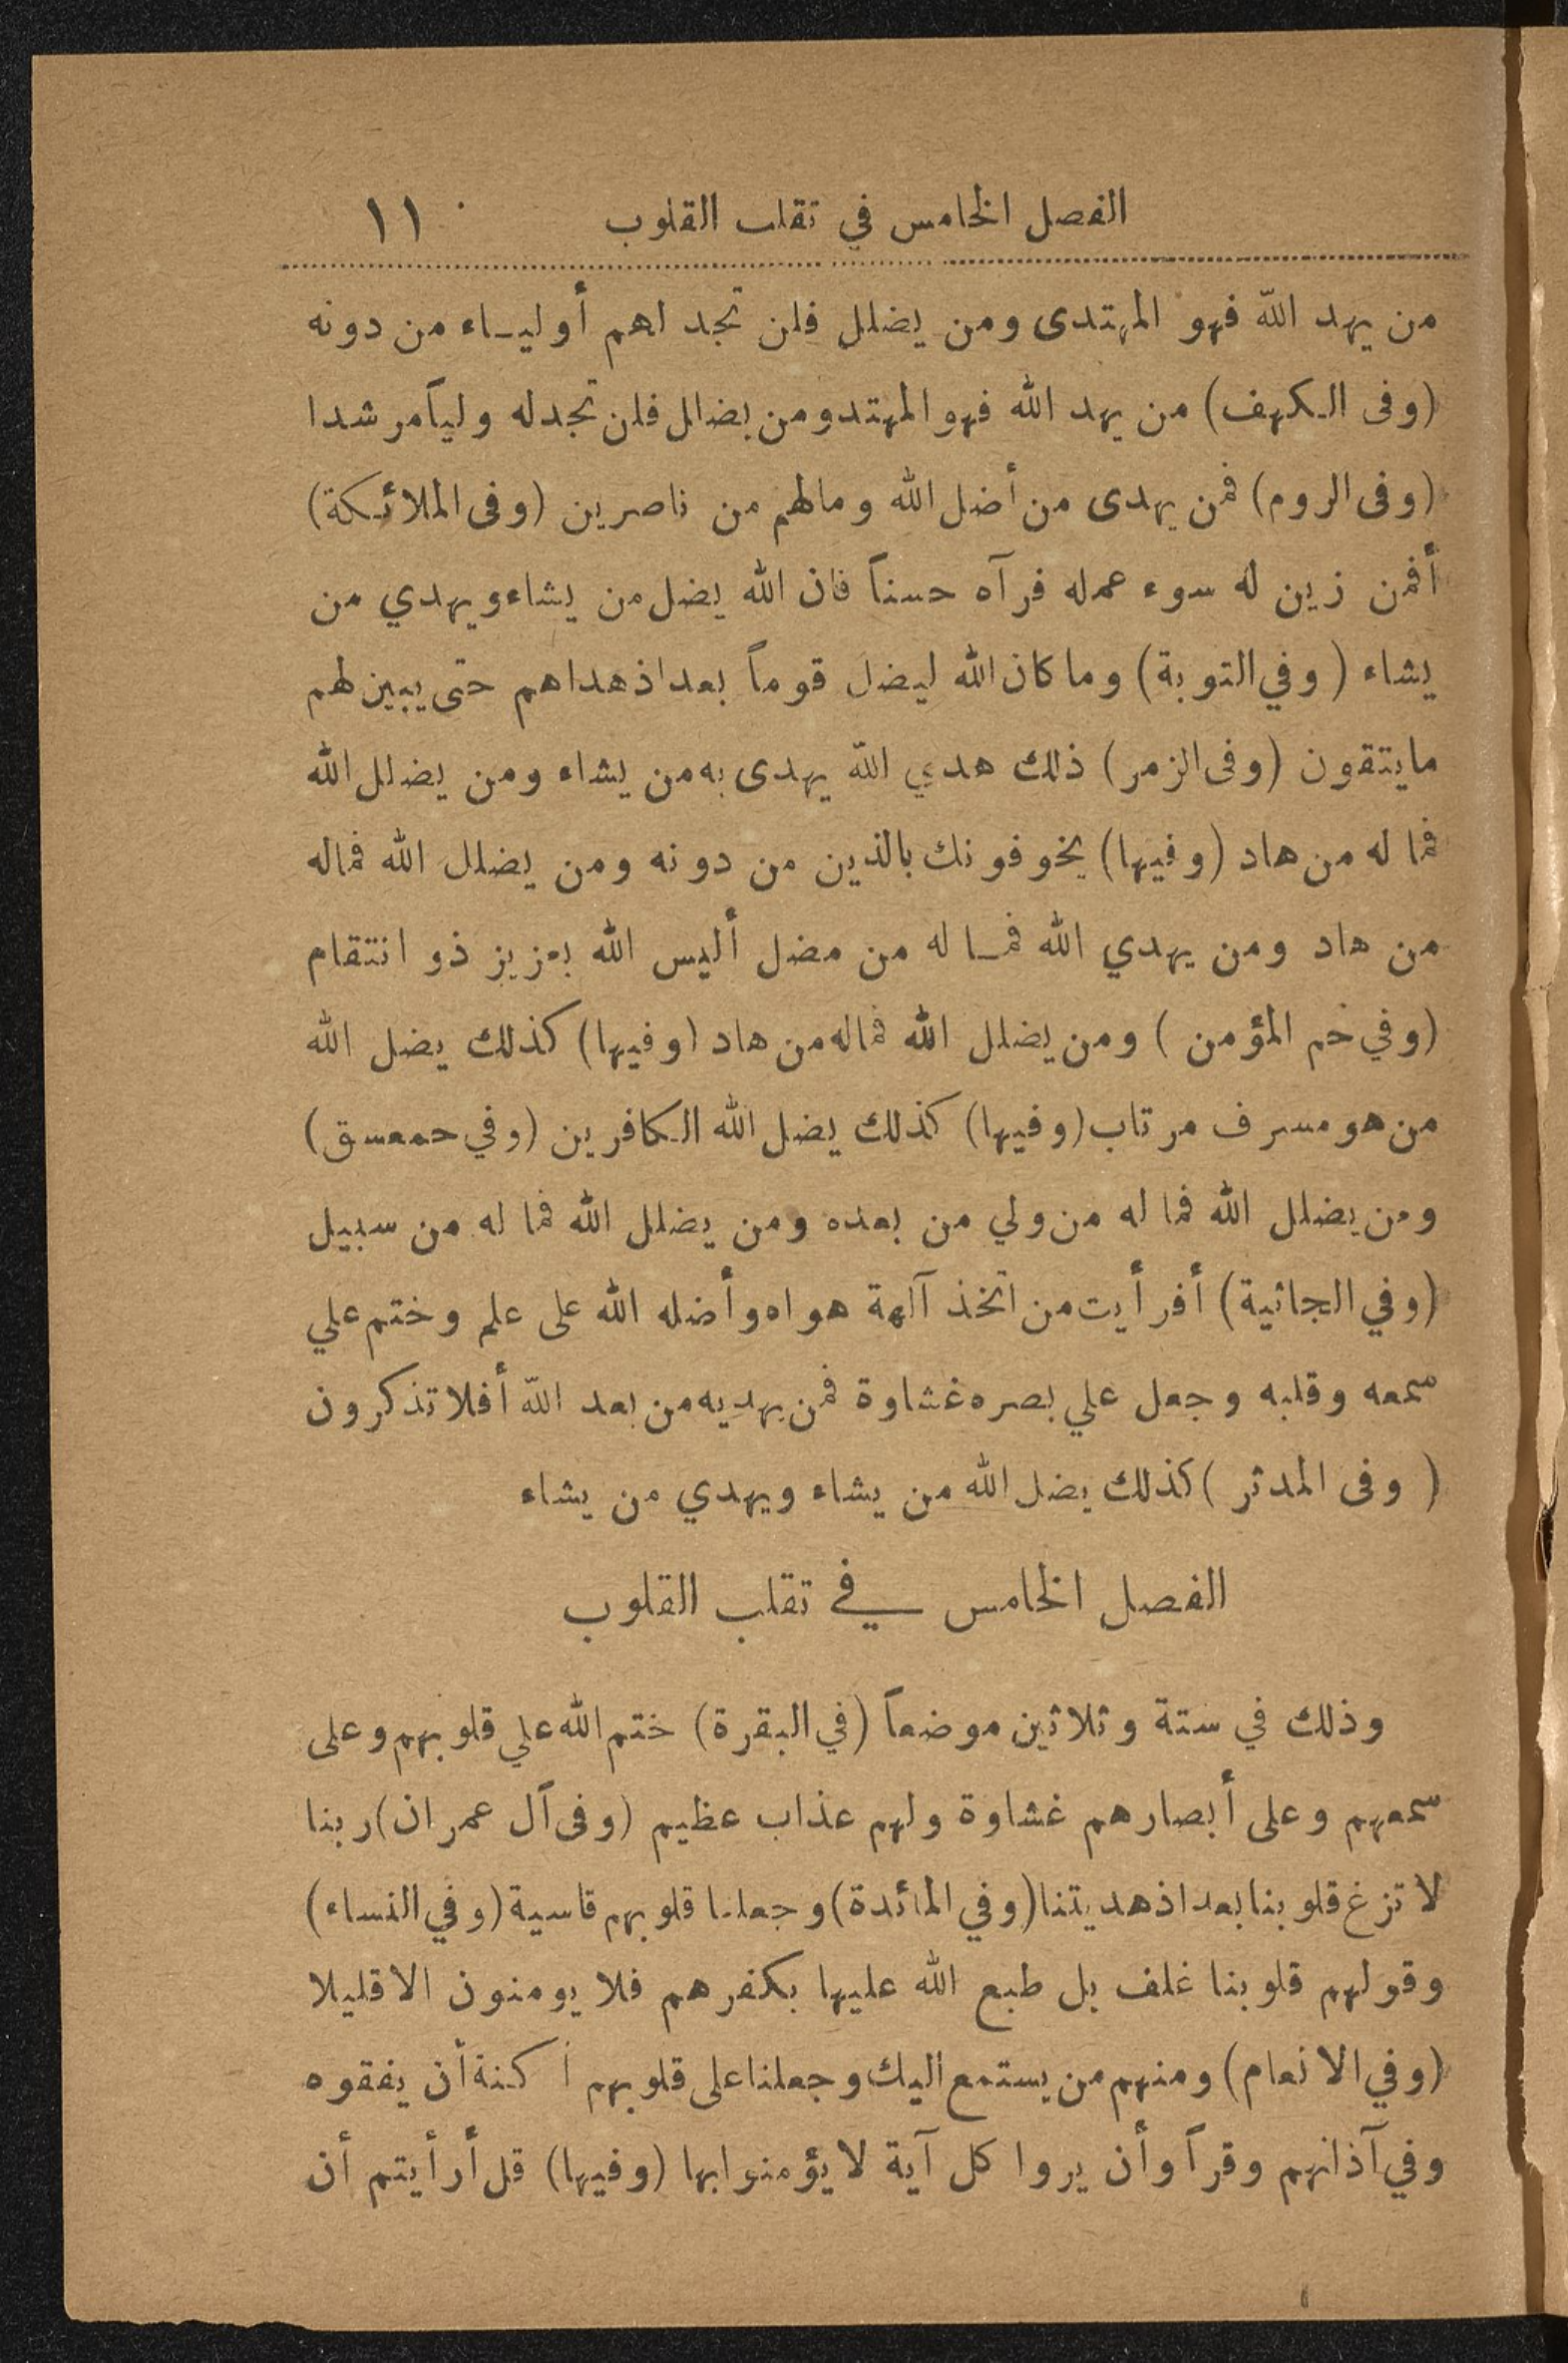 الفصل الخامس في تقلب القلوب ١١
من يهد الله فهو المهتدى ومن يضلل فلن تجد لهم أوليـاء من دونه
(وفى الكهف) من يهد الله فهو المهتد ومن يضلل فلن تجد له ولياً مرشدا
(وفى الروم) فمن يهدى من أضل الله ومالهم من ناصرين (وفى الملائكة)
أفمن زين له سوء عمله فرآه حسناً فان الله يضل من يشاء ويهدي من
يشاء (وفي التوبة) وما كان الله ليضل قوماً بعد اذ هداهم حتى يبين لهم
ما يتقون (وفى الزمر) ذلك هدي الله يهدى به من يشاء ومن يضلل الله
فما له من هاد (وفيها) يخوفونك بالذين من دونه ومن يضلل الله فماله
من هاد ومن يهدي الله فمـا له من مضل أليس الله بعزيز ذو انتقام
(وفي حم المؤمن) ومن يضلل الله فماله من هاد (وفيها) كذلك يضل الله
من هو مسرف مرتاب (وفيها) كذلك يضل الله الكافرين (وفي حمعسق)
ومن يضلل الله فما له من ولي من بعده ومن يضلل الله فما له من سبيل
(وفي الجاثية) أفرأيت من اتخذ آلهة هواه وأضله الله على علم وختم علي
سمعه وقلبه وجعل علي بصره غشاوة فمن يهديه من بعد الله أفلا تذكرون
(وفى المدثر) كذلك يضل الله من يشاء ويهدي من يشاء
الفصل الخامس في تقلب القلوب
وذلك في ستة وثلاثين موضعاً (في البقرة) ختم الله علي قلوبهم وعلى
سمعهم وعلى أبصارهم غشاوة ولهم عذاب عظيم (وفى آل عمران) ربنا
لا تزغ قلوبنا بعد اذ هديتنا (وفي المائدة) وجعلنا قلوبهم قاسية (وفي النساء)
وقولهم قلوبنا غلف بل طبع الله عليها بكفرهم فلا يومنون الا قليلا
(وفي الانعام) ومنهم من يستمع اليك وجعلنا على قلوبهم أكنة أن يفقهوه
وفي آذانهم وقرأ وأن يروا كل آية لا يؤمنوا بها (وفيها) قل أرأيتم أن